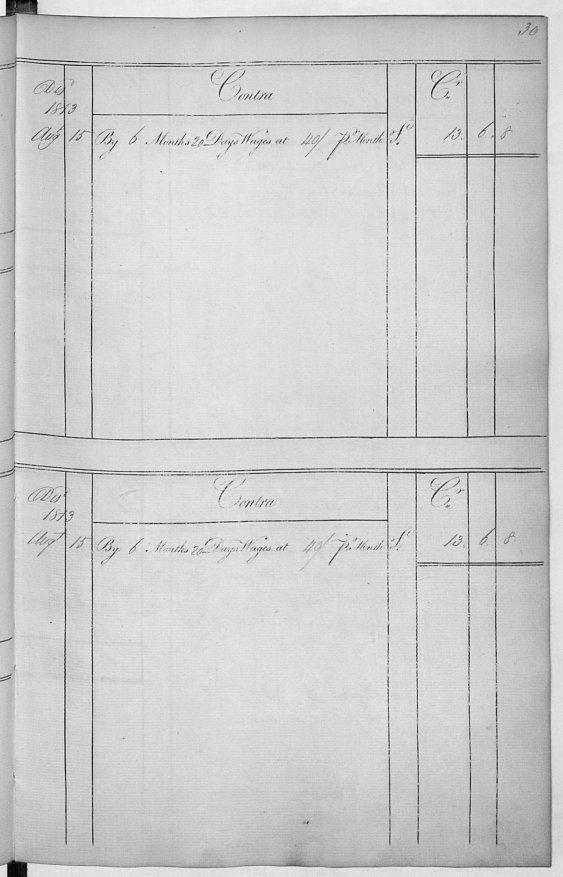 30
Dis^d Contra C^r
1813
Aug^t 15 By 6 Months 20 Days Wages at 40/ p^r Month £ 13. 6. 8
Dis^d Contra C^r
1813
Aug^t 15 By 6 Months 20 Days Wages at 40/ p^r Month £ 13. 6. 8